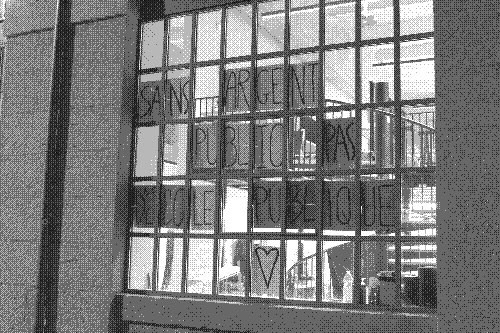 SANS ARGENT
PUBLIC PAS
D'ÉCOLE PUBLIQUE
♡